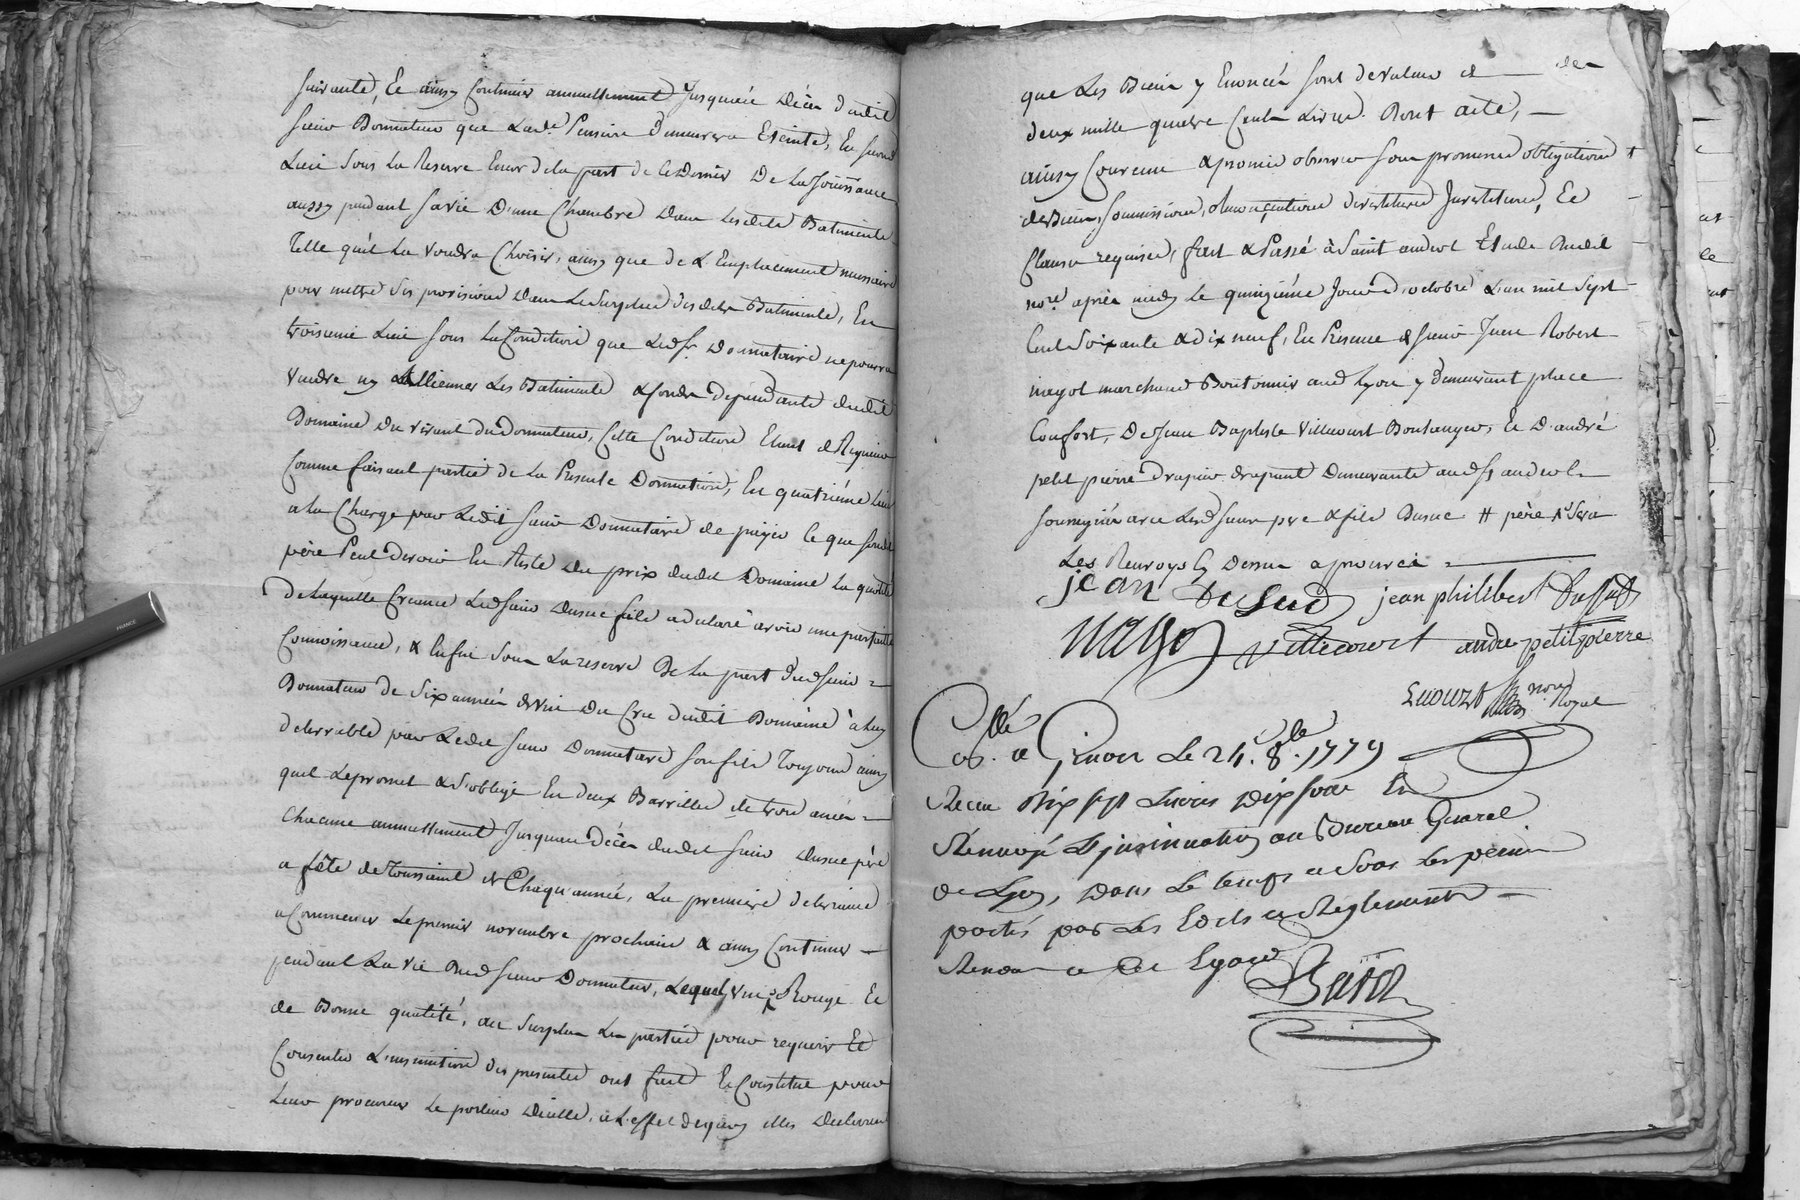 suivante, Et ainsy Continuer annuellement Jusques Décès dudit
sieur Donnateur que Lade. Pension demeurera Eteinte, En second
Lieu sous La Reserve Encor de la part de ce Dernier De La Jouissance
aussy pendant sa vie D'une Chambre Dans Lesdits Batiments
Telle qu'il La voudra Choisir, ainsy que de L'Emplacement necessaire
pour mettre ses provisions Dans Le Surplus desdits Batiments, En
troisieme Lieu sous La Condition que Led. sr. Donnataire ne pourra
vendre ny Alliener Les Batiments & fonds dependants dudit
Domaine Du vivant du Donnateur, Cette Condition Etant de Rigueur
Comme faisant partie de La Presente Donnation, En quatrième Lieu
a La Charge par Ledit sieur Donnataire de payer ce que sondit
père Peut devoir En Reste Du prix dudit Domaine La quotité
De Laquelle Creance Led. sieur Dusuc fils a declaré avoir une parfaite
Connoissance, & Enfin Sous La reserve De La part dud. sieur
Donnateur de six années de vin Du Cru dudit Domaine à luy
delivrable par Ledit sieur Donnataire son fils Toujours ainsy
quil Le promet & s'oblige En deux Barrilles de trois années
Chacune annuellement Jusqu'au Décès dudit sieur Dusuc père
a fête de Toussaint de Chaqu'année, La premiere delivrance
a Commencer Le premier novembre prochain & ainsy Continuer
pendant La vie Dud. sieur Donnateur, Lequel vin Rouge Et
de Bonne qualité, au surplus Les parties pour requerir Et
Consentir L'insinuation des presentes ont fait Et Constitué pour
Leur procureur Le porteur D'icelles, a L'effet de quoy elles declarent
que Les Biens y Enoncés sont de valeur de
deux mille quatre Cents Livres. Dont acte,
ainsy Convenu & promis observer sous promesses obligations
de Biens, soumissions, Renonciations devestitures Investitures, Et
Clauses requises, fait & Passé à Saint andeol Etude Dudit
nore. après midy Le quinzième Jour d'octobre L'an mil sept
Cent Soixante & dix neuf, En Presence de sieur Jean Robert
nayol marchand Boutonnier aud. Lyon y demeurant place
Confort, De Jean Baptiste Villecourt Boulanger, Et D'andré
petit pierre Drapier drapant Demeurants aud. st. andeol
soussignés avec Lesd. sieurs pre & fils Dusuc # père
Les Renvoys Cy Dessus approuvés
jean Du Suc jean philibert Dussuc
nayol villecourt andre petit pierre
nore Royal
Collé a Givors Le 24. 8bre. 1779
Recu Dix sept Livres Dix sols Et
Renvoyé L'jnsinuation au Bureau General
de Lyon, Dans Le temps et Sous Les peines
portés par Les Edits et Reglements